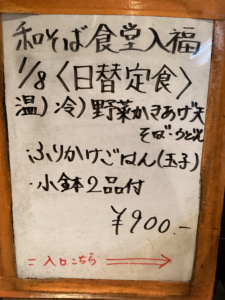 和そば食堂入福
1/8〈日替定食〉
温)冷)野菜かきあげ天
そば・うどん
・ふりかけごはん(玉子)
・小鉢2品付
¥900.-
= 入口こちら →